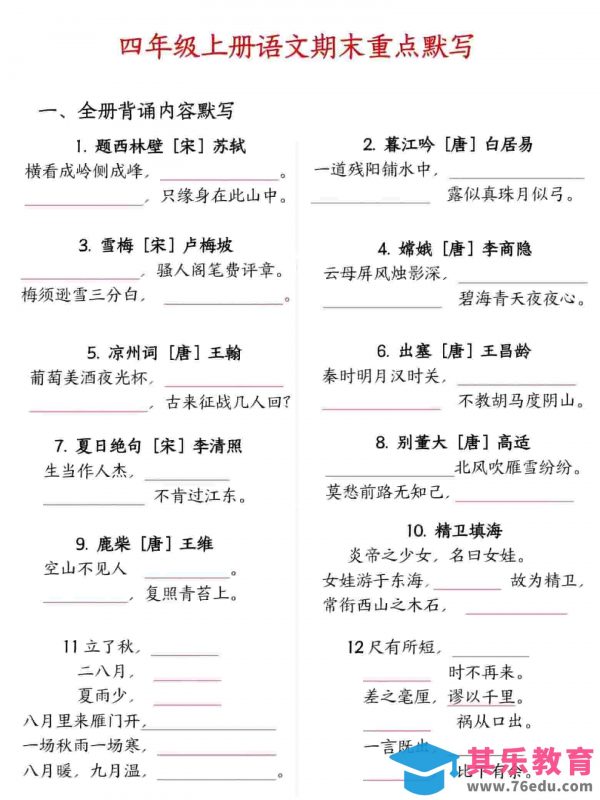 四年级上册语文期末重点默写
一、全册背诵内容默写
1. 题西林壁［宋］苏轼
横看成岭侧成峰，________。
________，只缘身在此山中。
2. 暮江吟［唐］白居易
一道残阳铺水中，________
________ 露似真珠月似弓。
3. 雪梅［宋］卢梅坡
________，骚人阁笔费评章。
梅须逊雪三分白，________。
4. 嫦娥［唐］李商隐
云母屏风烛影深，________
________ 碧海青天夜夜心。
5. 凉州词［唐］王翰
葡萄美酒夜光杯，________
________，古来征战几人回？
6. 出塞［唐］王昌龄
秦时明月汉时关，________
________ 不教胡马度阴山。
7. 夏日绝句［宋］李清照
生当作人杰，________
________ 不肯过江东。
8. 别董大［唐］高适
________北风吹雁雪纷纷。
莫愁前路无知己，________
9. 鹿柴［唐］王维
空山不见人 ________
________，复照青苔上。
10. 精卫填海
炎帝之少女，名曰女娃。
女娃游于东海，________ 故为精卫，
常衔西山之木石，________。
11 立了秋，________
二八月，________
夏雨少，________
八月里来雁门开，________
一场秋雨一场寒，________
八月暖，九月温，________。
12 尺有所短，________
________ 时不再来。
差之毫厘，谬以千里。
________ 祸从口出。
一言既出，________
________ 比下有余。
其乐教育
www.76edu.com